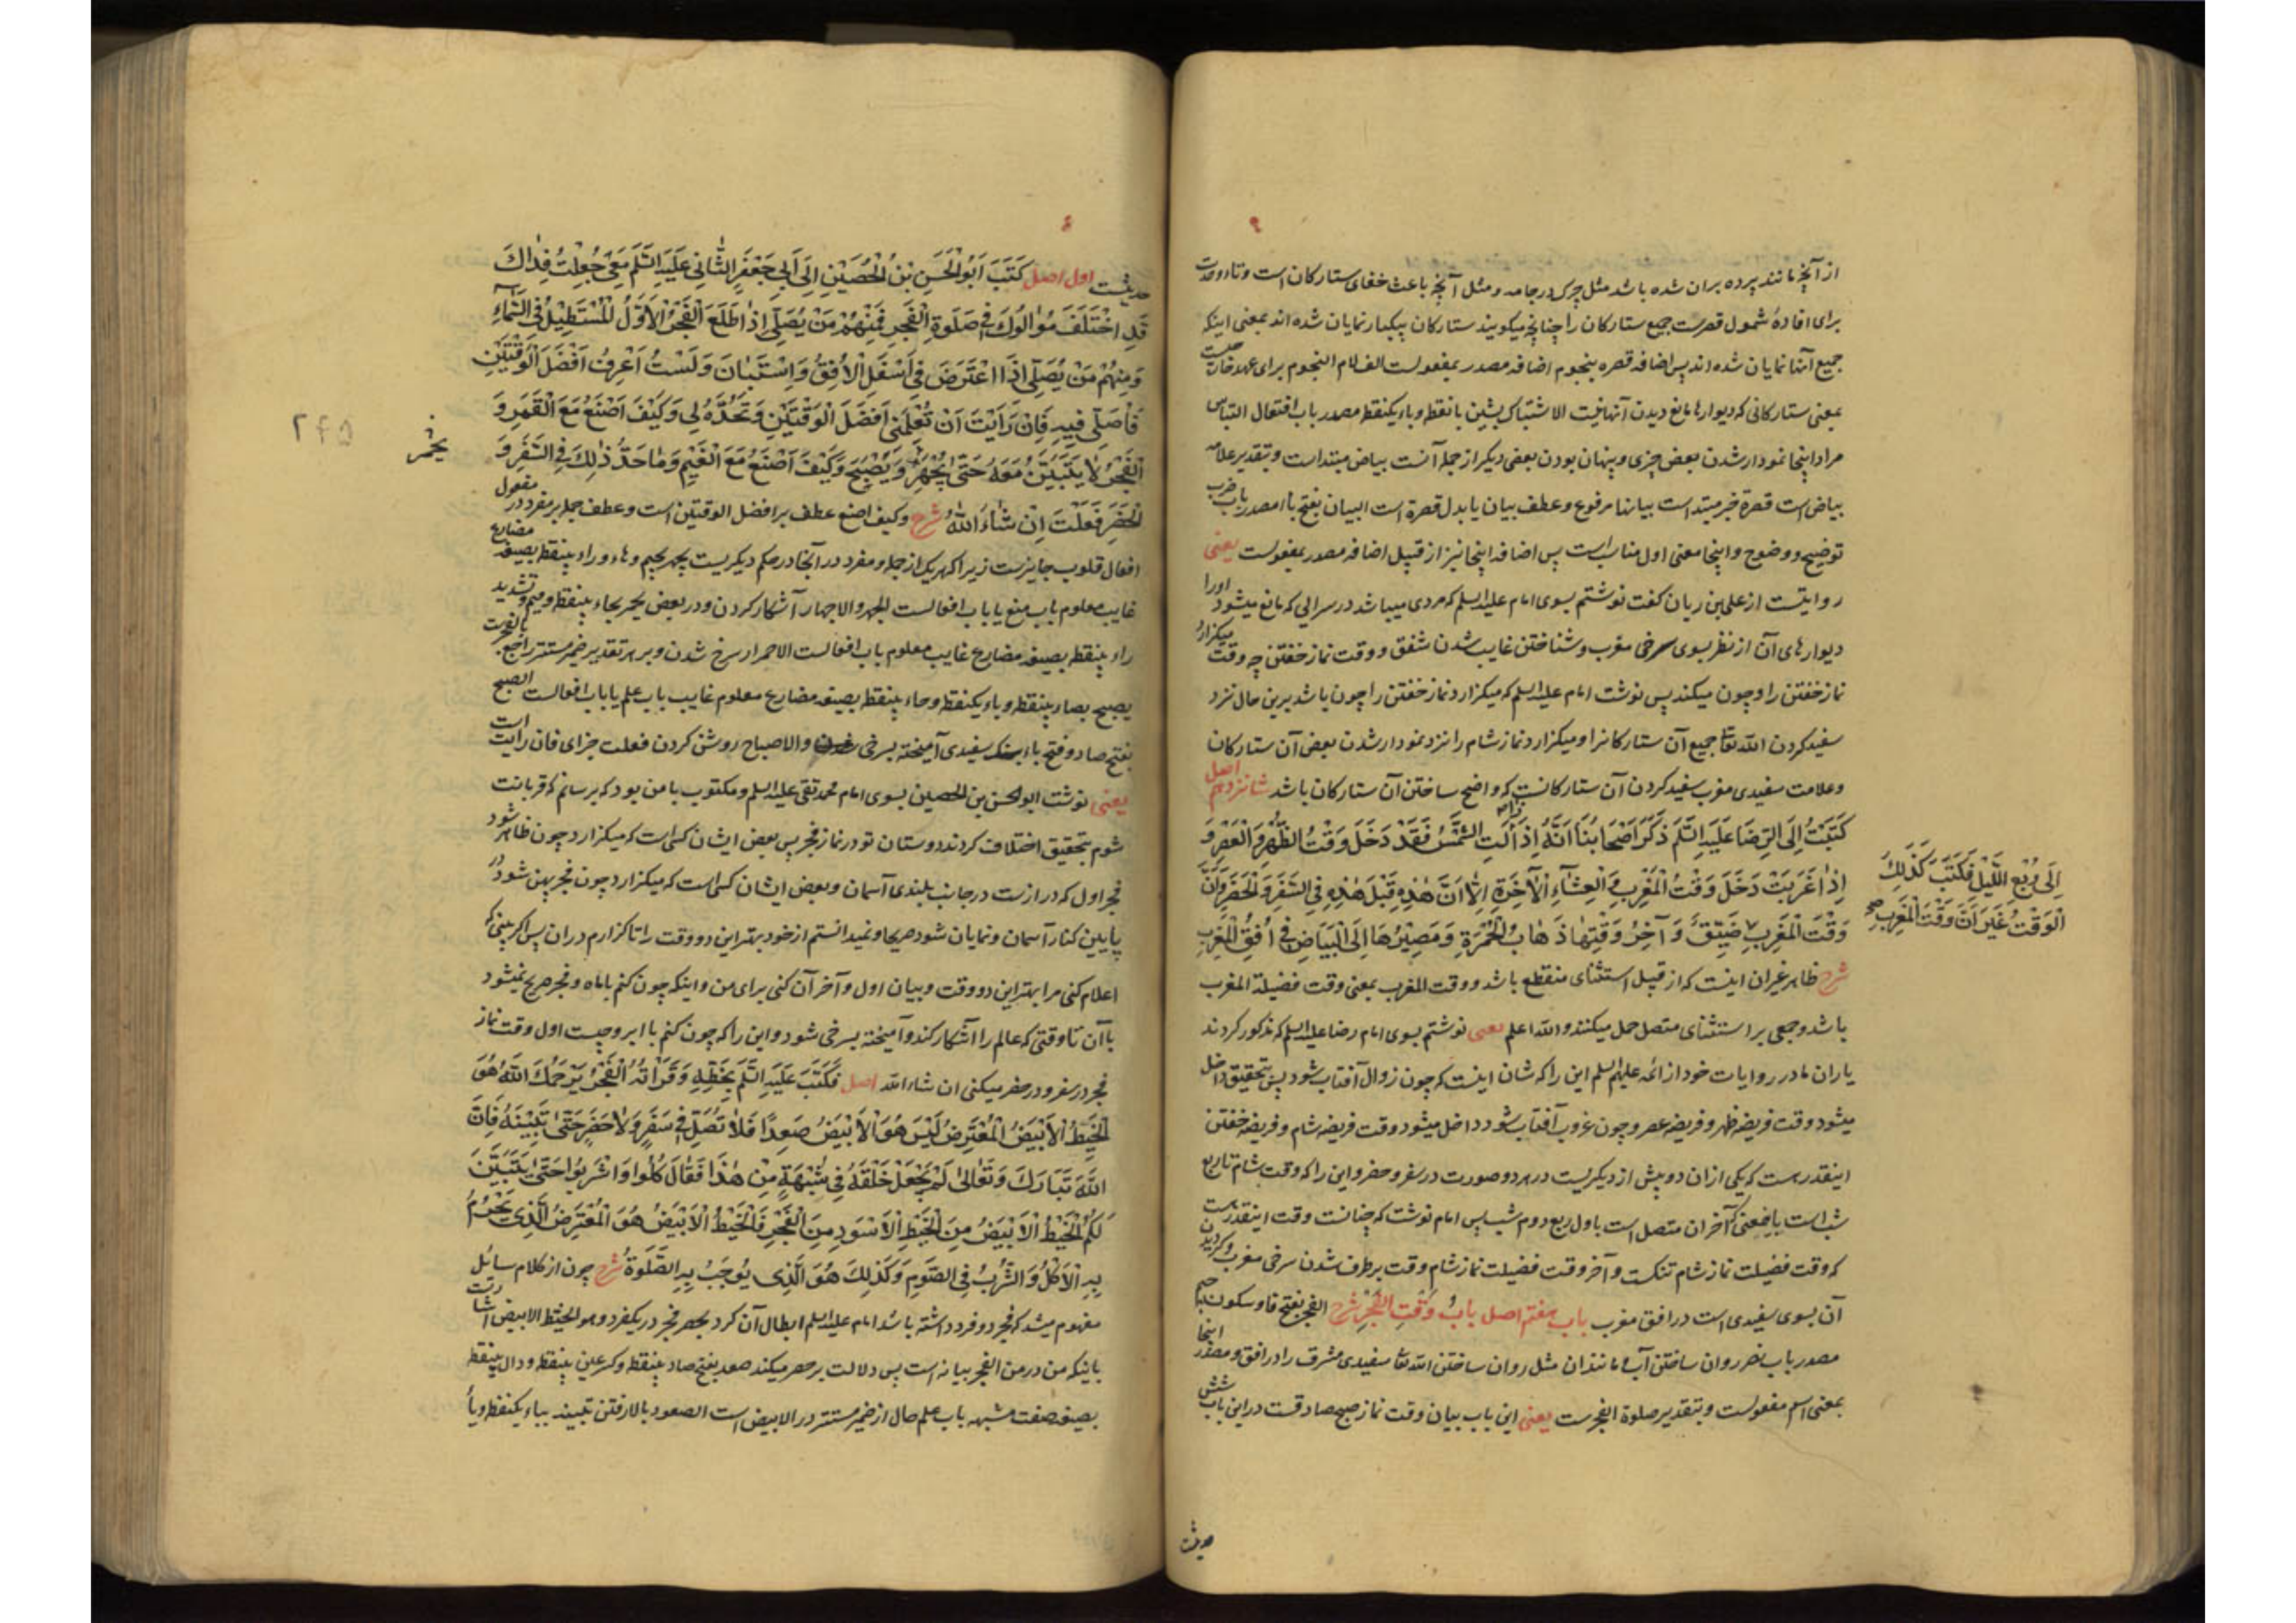 از آنچه مانند پرده بران شده باشد مثل چرک در جامه و مثل آنچه باعث خفای ستارکان است و تاء وحدت
برای افادهٔ شمول قصرست جمیع ستارکان را چنانچه میکویند ستارکان بیکبار نمایان شده اند بمعنی اینکه
جمیع آنها نمایان شده اند پس اضافه قصره بنجوم اضافه مصدر بمفعولست الف لام النجوم برای عهد خارجیست
بمعنی ستارکانی که دیوارها مانع دیدن آنها نیست الاشتباک بشین بانقطه و باء یکنقطه مصدر باب افتعال التباس
مراد اینجا نمودار شدن بعض چیزی و پنهان بودن بعض دیکر از جمله آنست بیاض مبتداست و بتقدیر علامه
بیاض است قصرة خبر مبتداست بیانها مرفوع و عطف بیان یا بدل قصرة است البیان بفتح باا مصدر باب ضرب
توضیح و وضوح و اینجا معنی اول مناسب است پس اضافه اینجا نیز از قبیل اضافه مصدر بمفعولست یعنی
روایتست از علی بن ریان کفت نوشتم بسوی امام علیه السلم که مردی میباشد در سرایی که مانع میشود اورا
دیوارهای آن از نظر بسوی سرخی مغرب و شناختن غایب شدن شفق و وقت نماز خفتن چه وقت میکزارد
نماز خفتن را و چون میکند پس نوشت امام علیه السلم که میکزارد نماز خفتن را چون باشد برین حال نزد
سفید کردن الله تعا جمیع آن ستارکانرا و میکزارد نماز شام را نزد نمودار شدن بعض آن ستارکان
و علامت سفیدی مغرب سفید کردن آن ستارکانست که واضح ساختن آن ستارکان باشد شانزدهم اصل
کَتَبْتُ اِلَی الرِّضَا عَلَیْهِ السَّلَم ذَکَرَ اَصْحَابُنَا اَنَّهُ اِذَا زَالَتِ الشَّمْسُ فَقَدْ دَخَلَ وَقْتُ الظُّهْرِ وَالْعَصْرِ وَ
اِذَا غَرَبَتْ دَخَلَ وَقْتُ الْمَغْرِبِ وَ الْعِشَآءِ الْآخِرَةِ اِلَّا اَنَّ هٰذِهِ قَبْلَ هٰذِهِ فِی السَّفَرِ وَالْحَضَرِ وَاَنَّ
وَقْتَ الْمَغْرِبِ ضَیِّقٌ وَ آخِرُ وَقْتِهَا ذَهَابُ الْحُمْرَةِ وَمَصِیْرُهَا اِلَی الْبَیَاضِ فِی اُفُقِ الْمَغْرِبِ
اِلَی رُبْعِ اللَّیْلِ فَکَتَبَ کَذٰلِکَ
الْوَقْتُ غَیْرَ اَنَّ وَقْتَ الْمَغْرِبِ صح
شرح ظاهر غیر ان اینست که از قبیل استثنای منقطع باشد و وقت المغرب بمعنی وقت فضیلة المغرب
باشد و جمعی بر استثنای متصل حمل میکنند والله اعلم یعنی نوشتم بسوی امام رضا علیه السلم که مذکور کردند
یاران ما در روایات خود از ائمه علیهم السلم این را که شان اینست که چون زوال آفتاب شود پس بتحقیق داخل
میشود وقت فریضه ظهر و فریضه عصر و چون غروب آفتاب شود داخل میشود وقت فریضه شام و فریضه خفتن
اینقدر هست که یکی ازان دو پیش از دیکریست در هر دو صورت در سفر و حضر و این را که وقت شام تا ربع
شب است باینمعنی که آخر ان متصل است باول ربع دوم شب پس امام نوشت که چنانست وقت اینقدر هست
که وقت فضیلت نماز شام تنکست و آخر وقت فضیلت نماز شام وقت برطرف شدن سرخی مغرب و کردیدن
آن بسوی سفیدی است در افق مغرب باب هفتم اصل بابُ وَقْتِ الْفَجْرِ شرح الفجر بفتح فا و سکون جیم
مصدر باب نصر روان ساختن آب و مانند ان مثل روان ساختن الله تعا سفیدی مشرق را در افق و مصدر اینجا
بمعنی اسم مفعولست و بتقدیر صلوة الفجرست یعنی این باب بیان وقت نماز صبح صادقست در این باب شش
حدیثست
حدیثست اول اصل کَتَبَ اَبُو الْحَسَنِ بْنُ الْحُصَیْنِ اِلَی اَبِی جَعْفَرٍ الثَّانِی عَلَیْهِ السَّلَم مَعِی جُعِلْتُ فِدَاکَ
قَدِ اخْتَلَفَ مُوَالُوکَ فِی صَلٰوةِ الْفَجْرِ فَمِنْهُمْ مَنْ یُصَلِّی اِذَا طَلَعَ الْفَجْرُ الْاَوَّلُ الْمُسْتَطِیْلُ فِی السَّمَاءِ
وَمِنْهُمْ مَنْ یُصَلِّی اِذَا اعْتَرَضَ فِی اَسْفَلِ الْاُفُقِ وَاسْتَبَانَ وَلَسْتُ اَعْرِفُ اَفْضَلَ الْوَقْتَیْنِ
فَاُصَلِّی فِیهِ فَاِنْ رَاَیْتَ اَنْ تُعَلِّمَنِی اَفْضَلَ الْوَقْتَیْنِ وَتَحُدَّهُ لِی وَکَیْفَ اَصْنَعُ مَعَ الْقَمَرِ وَ
الْفَجْرُ لَا یَتَبَیَّنُ مَعَهُ حَتّٰی یَجْهَرَ وَیُصْبِحَ وَکَیْفَ اَصْنَعُ مَعَ الْغَیْمِ وَمَا حَدُّ ذٰلِکَ فِی السَّفَرِ وَ
یحمر
۲۴۵
الْحَضَرِ فَعَلْتَ اِنْ شَاءَ اللّٰهُ شرح و کیف اصنع عطف بر افضل الوقتین است و عطف جمله بر مفرد در مفعول
افعال قلوب جایزست زیرا که هر یک از جمله و مفرد در آنجا در حکم دیکریست یجهر بجیم و هاء و راء بینقطه بصیغه مضارع
غایب معلوم باب منع یا باب افعالست الجهر والاجهار آشکار کردن و در بعض یحمر بحاء بینقطه و میم و تشدید
راء بینقطه بصیغه مضارع غایب معلوم باب افعالست الاحمرار سرخ شدن و بر هر تقدیر ضمیر مستتر راجع بالفجرست
یصبح بصاد بینقطه و باء یکنقطه و حاء بینقطه بصیغه مضارع معلوم غایب باب علم یا باب افعالست الصبح
بفتح صاد و فتح باء سفیدی آمیخته بسرخی والاصباح روشن کردن فعلت جزای فان رایت است
یعنی نوشت ابو الحسن بن الحصین بسوی امام محمد تقی علیه السلم و مکتوب با من بود که برسانم که قربانت
شوم بتحقیق اختلاف کردند دوستان تو در نماز فجر پس بعض ایشان کسی است که میکزارد چون ظاهر شود
فجر اول که درازست در جانب بلندی آسمان و بعض ایشان کسی است که میکزارد چون فجر پهن شود در
پایین کنار آسمان و نمایان شود صریحا و نمیدانستم از خود بهتر این دو وقت را تا کزارم دران پس اکر بینی که
اعلام کنی مرا بهتر این دو وقت و بیان اول و آخر آن کنی برای من و اینکه چون کنم با ماه و فجر صریح نمیشود
با آن تا وقتی که عالم را آشکار کند و آمیخته بسرخی شود و این را که چون کنم با ابر و چیست اول وقت نماز
فجر در سفر و در حضر میکنی ان شاء الله اصل فَکَتَبَ عَلَیْهِ السَّلَم بِخَطِّهِ وَقَرَاْتُهُ الْفَجْرُ یَرْحَمُکَ اللّٰهُ هُوَ
الْخَیْطُ الْاَبْیَضُ الْمُعْتَرِضُ لَیْسَ هُوَ الْاَبْیَضُ صَعِدًا فَلَا تُصَلِّ فِی سَفَرٍ وَلَا حَضَرٍ حَتّٰی تَبَیَّنَهُ فَاِنَّ
اللّٰهَ تَبَارَکَ وَتَعَالٰی لَمْ یَجْعَلْ خَلْقَهُ فِی شُبْهَةٍ مِنْ هٰذَا فَقَالَ کُلُوا وَاشْرَبُوا حَتّٰی یَتَبَیَّنَ
لَکُمُ الْخَیْطُ الْاَبْیَضُ مِنَ الْخَیْطِ الْاَسْوَدِ مِنَ الْفَجْرِ فَالْخَیْطُ الْاَبْیَضُ هُوَ الْمُعْتَرِضُ الَّذِی یَحْرُمُ
بِهِ الْاَکْلُ وَ الشُّرْبُ فِی الصَّوْمِ وَکَذٰلِکَ هُوَ الَّذِی یُوجَبُ بِهِ الصَّلٰوةُ شرح چون از کلام سائل
مفهوم میشد که فجر دو فرد داشته باشد امام علیه السلم ابطال آن کرد بحصر فجر در یکفرد و هو الخیط الابیض اشارتست
باینکه من در من الفجر بیانه است پس دلالت بر حصر میکند صعد بفتح صاد بینقطه و کسر عین بینقطه و دال بینقطه
بصیغه صفت مشبهه باب علم حال از ضمیر مستتر در الابیض است الصعود بالا رفتن تبینه بباء یکنقطه و یاء